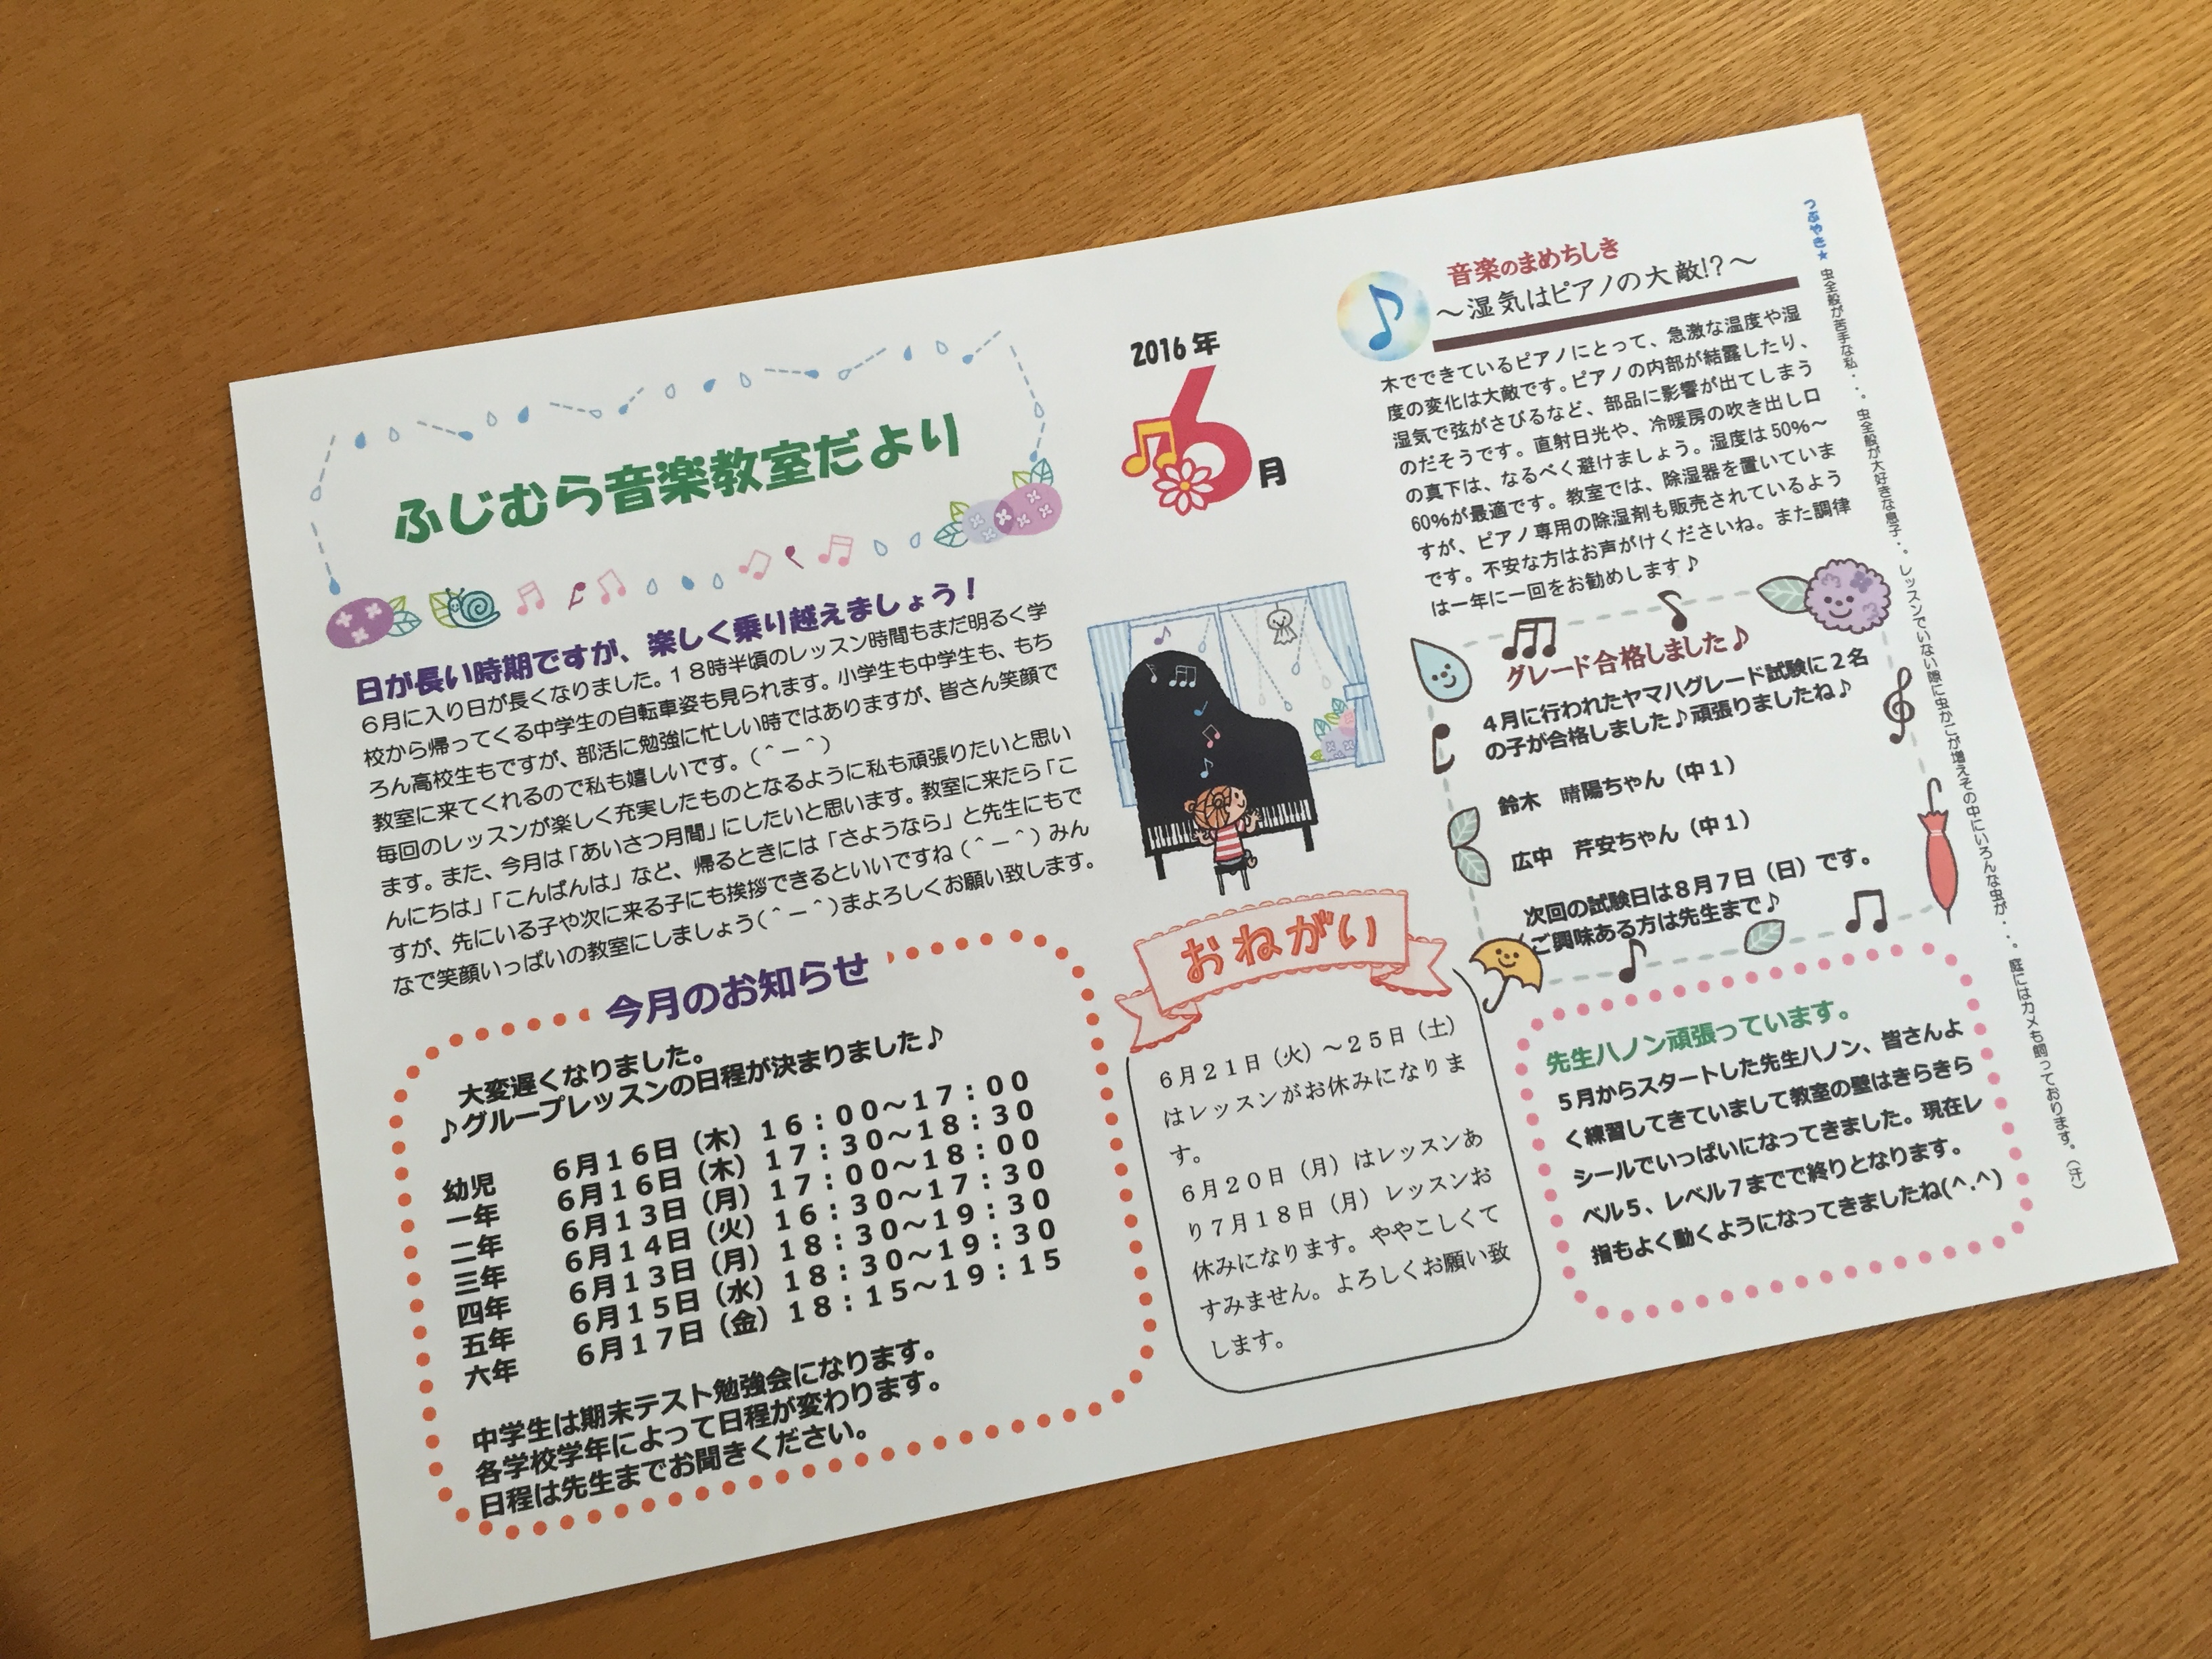 ふじむら音楽教室だより
2016年
6
月
日が長い時期ですが、楽しく乗り越えましょう！
６月に入り日が長くなりました。１８時半頃のレッスン時間もまだ明るく学
校から帰ってくる中学生の自転車姿も見られます。小学生も中学生も、もち
ろん高校生もですが、部活に勉強に忙しい時ではありますが、皆さん笑顔で
教室に来てくれるので私も嬉しいです。(＾－＾)
毎回のレッスンが楽しく充実したものとなるように私も頑張りたいと思い
ます。また、今月は「あいさつ月間」にしたいと思います。教室に来たら「こ
んにちは」「こんばんは」など、帰るときには「さようなら」と先生にもで
すが、先にいる子や次に来る子にも挨拶できるといいですね(＾－＾)みん
なで笑顔いっぱいの教室にしましょう(＾－＾)まよろしくお願い致します。
今月のお知らせ
大変遅くなりました。
♪グループレッスンの日程が決まりました♪
幼児　６月１６日（木）１６：００～１７：００
一年　６月１６日（木）１７：３０～１８：３０
二年　６月１３日（月）１７：００～１８：００
三年　６月１４日（火）１６：３０～１７：３０
四年　６月１３日（月）１８：３０～１９：３０
五年　６月１５日（水）１８：３０～１９：３０
六年　６月１７日（金）１８：１５～１９：１５
中学生は期末テスト勉強会になります。
各学校学年によって日程が変わります。
日程は先生までお聞きください。
おねがい
６月２１日（火）～２５日（土）
はレッスンがお休みになりま
す。
６月２０日（月）はレッスンあ
り７月１８日（月）レッスンお
休みになります。ややこしくて
すみません。よろしくお願い致
します。
音楽のまめちしき
～湿気はピアノの大敵!?～
木でできているピアノにとって、急激な温度や湿
度の変化は大敵です。ピアノの内部が結露したり、
湿気で弦がさびるなど、部品に影響が出てしまう
のだそうです。直射日光や、冷暖房の吹き出し口
の真下は、なるべく避けましょう。湿度は50%～
60%が最適です。教室では、除湿器を置いていま
すが、ピアノ専用の除湿剤も販売されているよう
です。不安な方はお声がけくださいね。また調律
は一年に一回をお勧めします♪
グレード合格しました♪
４月に行われたヤマハグレード試験に２名
の子が合格しました♪頑張りましたね♪
鈴木　晴陽ちゃん（中１）
広中　芹安ちゃん（中１）
次回の試験日は８月７日（日）です。
ご興味ある方は先生まで♪
先生ハノン頑張っています。
５月からスタートした先生ハノン、皆さんよ
く練習してきていまして教室の壁はきらきら
シールでいっぱいになってきました。現在レ
ベル５、レベル７までで終りとなります。
指もよく動くようになってきましたね(^.^)
つぶやき★　虫全般が苦手な私・・・虫全般が大好きな息子・・レッスンでいない隙に虫かごが増えその中にいろんな虫が・・・庭にはカメも飼っております。（汗）